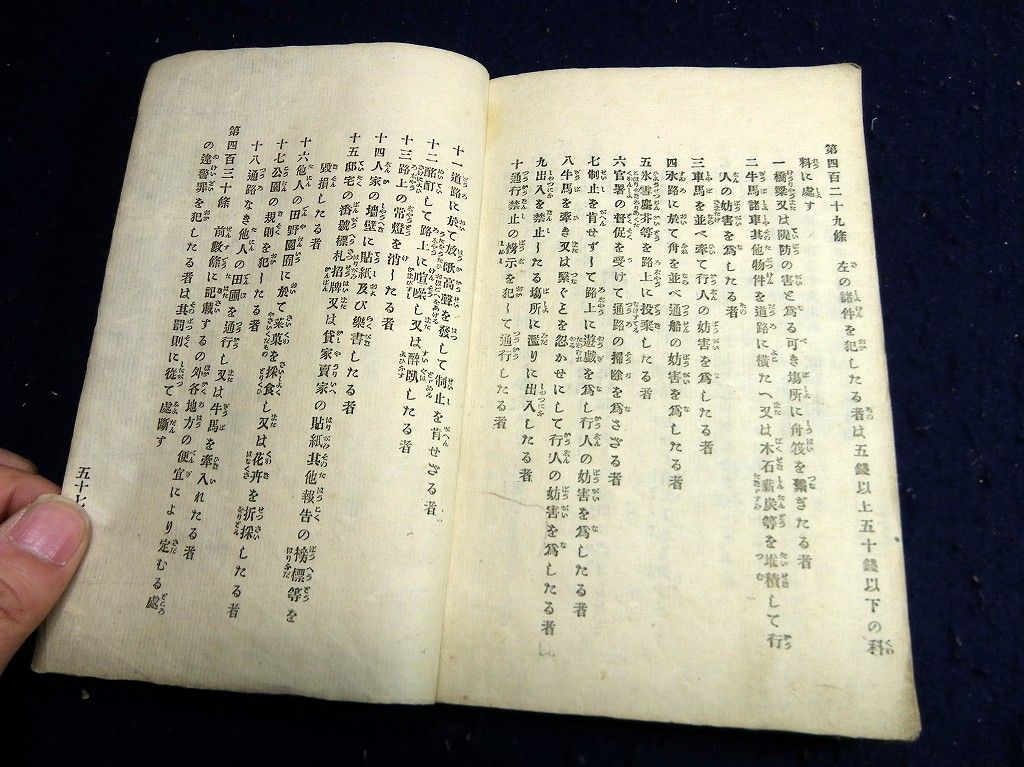 第四百二十九條 左の諸件を犯したる者は五錢以上五十錢以下の科
料に處す
一橋梁又は隄防の害と爲る可き塲所に舟筏を繋ぎたる者
二牛馬諸車其他物件を道路に横たへ又は木石薪炭等を堆積して行
人の妨害を爲したる者
三車馬を並べ牽て行人の妨害を爲したる者
四水路に於て舟を並べ通船の妨害を爲したる者
五氷雪塵芥等を路上に投棄したる者
六官署の督促を受けて道路の掃除を爲さざる者
七制止を肯せずして路上に遊戯を爲し行人の妨害を爲したる者
八牛馬を牽き又は繋ぐとを忽かせにして行人の妨害を爲したる者
九出入を禁止したる塲所に濫りに出入したる者
十通行禁止の榜示を犯して通行したる者
十一道路に於て放歌高聲を發して制止を肯せざる者
十二酩酊して路上に喧噪し又は醉臥したる者
十三路上の常燈を消したる者
十四人家の墻壁に貼紙及び樂書したる者
十五邸宅の番號標札招牌又は貸家賣家の貼紙其他報告の榜標等を
毀損したる者
十六他人の田野園囿に於て菜菓を採食し又は花卉を折採したる者
十七公園の規則を犯したる者
十八通路なき他人の田圃を通行し又は牛馬を牽入れたる者
第四百三十條 前數條に記載するの外各地方の便宜により定むる處
の違警罪を犯したる者は其罰則に從て處斷す
五十七